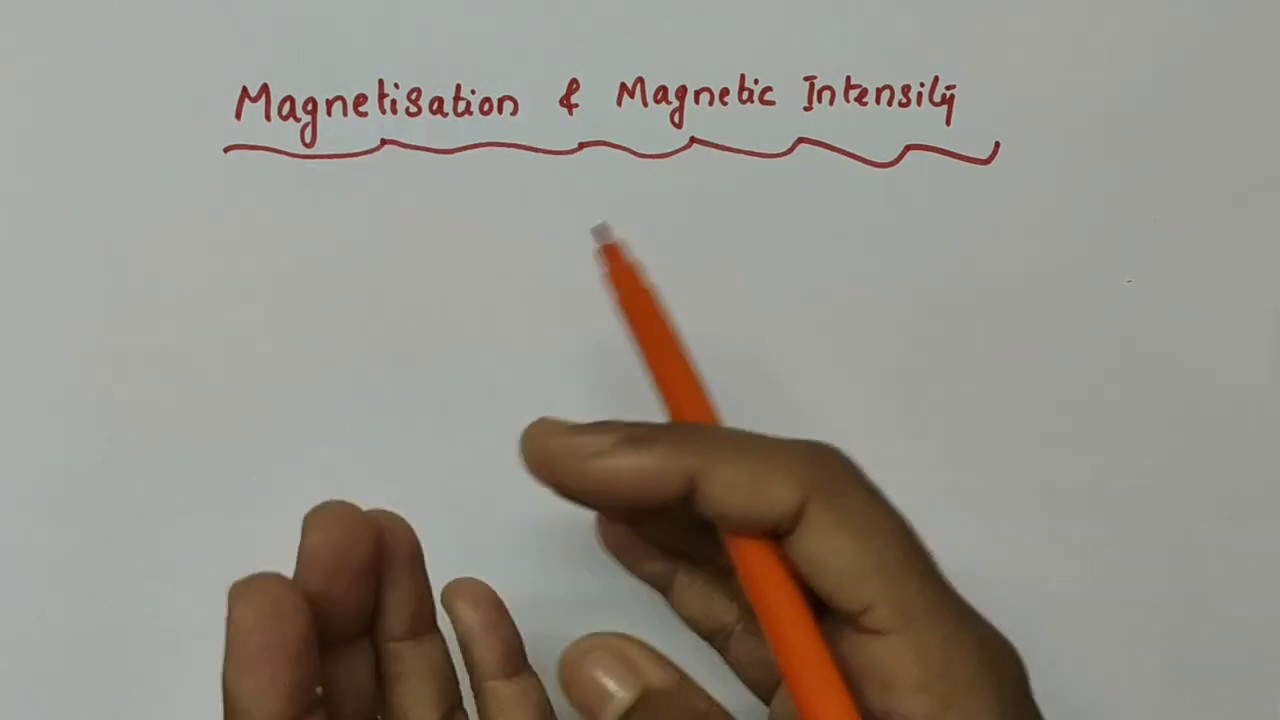 Magnetisation & Magnetic Intensity